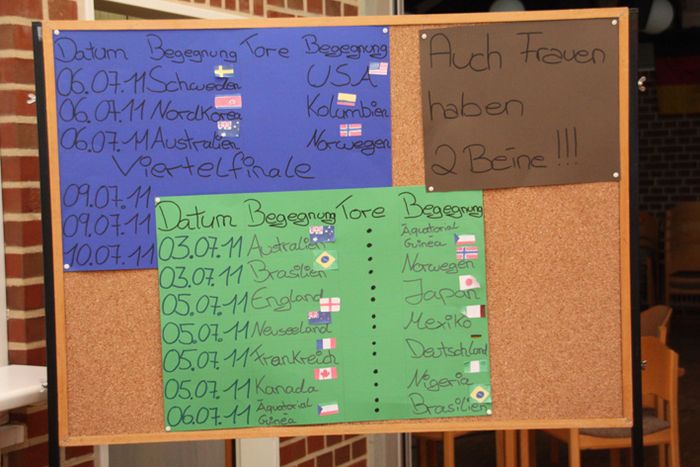 Datum Begegnung Tore Begegnung
06.07.11 Schweden USA
06.07.11 Nordkorea Kolumbien
06.07.11 Australien Norwegen
Viertelfinale
09.07.11
09.07.11
10.07.11
Auch Frauen
haben
2 Beine!!!
Datum Begegnung Tore Begegnung
03.07.11 Australien : Äquatorial Guinea
03.07.11 Brasilien : Norwegen
05.07.11 England : Japan
05.07.11 Neuseeland : Mexiko
05.07.11 Frankreich : Deutschland
05.07.11 Kanada : Nigeria
06.07.11 Äquatorial Guinea : Brasilien